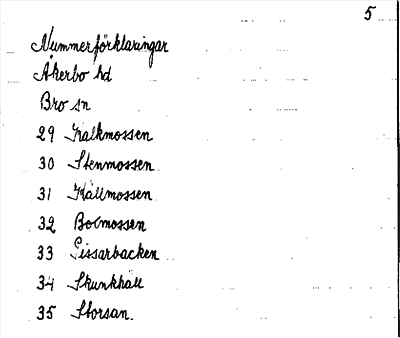 5
Nummerförklaringar
Åkerbo hd
Bro sn
29 Kalkmossen
30 Stenmossen
31 Källmossen
32 Bolmossen
33 Sissarbacken
34 Skunkhäll
35 Storsan.